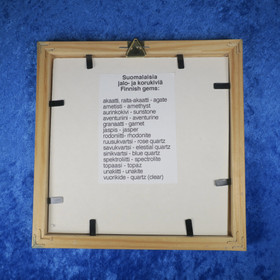 Suomalaisia
jalo- ja korukiviä
Finnish gems:
akaatti, raita-akaatti - agate
ametisti - amethyst
aurinkokivi - sunstone
aventuriini - aventurine
granaatti - garnet
jaspis - jasper
rodoniitti - rhodonite
ruusukvartsi - rose quartz
savukvartsi - elestial quartz
sinikvartsi - blue quartz
spektroliitti - spectrolite
topaasi - topaz
unakiitti - unakite
vuorikide - quartz (clear)